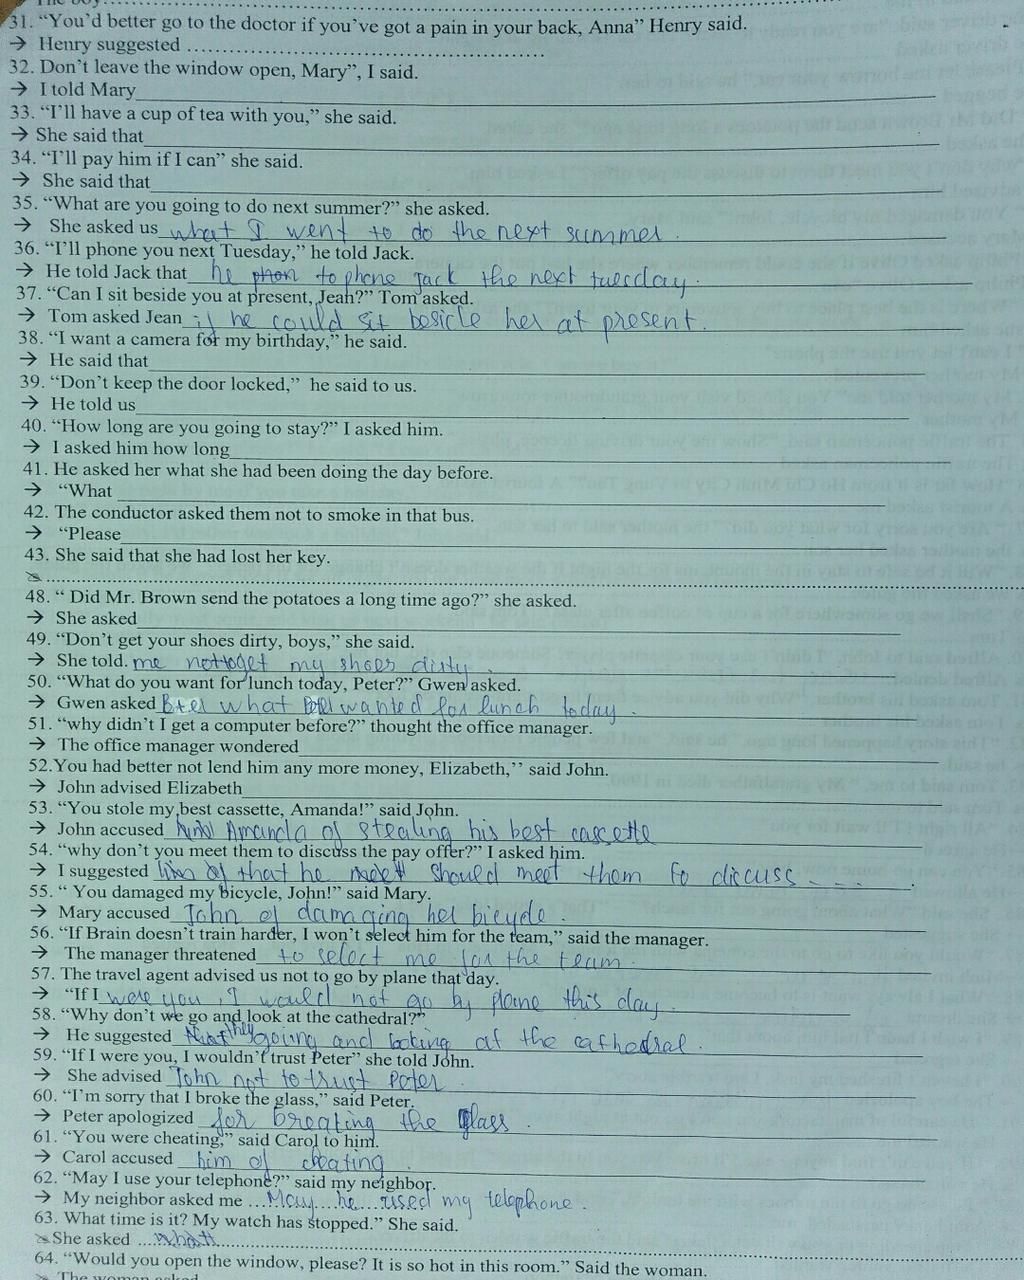 31. “You’d better go to the doctor if you’ve got a pain in your back, Anna” Henry said.
→ Henry suggested ..........................................................
32. Don’t leave the window open, Mary”, I said.
→ I told Mary
33. “I’ll have a cup of tea with you,” she said.
→ She said that
34. “I’ll pay him if I can” she said.
→ She said that
35. “What are you going to do next summer?” she asked.
→ She asked us what I went to do the next summer.
36. “I’ll phone you next Tuesday,” he told Jack.
→ He told Jack that he to phone jack the next tuesday.
37. “Can I sit beside you at present, Jean?” Tom asked.
→ Tom asked Jean if he could sit beside her at present.
38. “I want a camera for my birthday,” he said.
→ He said that
39. “Don’t keep the door locked,” he said to us.
→ He told us
40. “How long are you going to stay?” I asked him.
→ I asked him how long
41. He asked her what she had been doing the day before.
→ “What
42. The conductor asked them not to smoke in that bus.
→ “Please
43. She said that she had lost her key.
48. “ Did Mr. Brown send the potatoes a long time ago?” she asked.
→ She asked
49. “Don’t get your shoes dirty, boys,” she said.
→ She told. me not to get my shoes dirty.
50. “What do you want for lunch today, Peter?” Gwen asked.
→ Gwen asked what wanted for lunch today.
51. “why didn’t I get a computer before?” thought the office manager.
→ The office manager wondered
52.You had better not lend him any more money, Elizabeth,’’ said John.
→ John advised Elizabeth
53. “You stole my best cassette, Amanda!” said John.
→ John accused Amanda of stealing his best cassette
54. “why don’t you meet them to discuss the pay offer?” I asked him.
→ I suggested that he should meet them to discuss ....
55. “ You damaged my bicycle, John!” said Mary.
→ Mary accused John of damaging her bicycle.
56. “If Brain doesn’t train harder, I won’t select him for the team,” said the manager.
→ The manager threatened to select me for the team.
57. The travel agent advised us not to go by plane that day.
→ “If I were you, I would not go by plane this day.
58. “Why don’t we go and look at the cathedral?”
→ He suggested they going and looking at the cathedral.
59. “If I were you, I wouldn’t trust Peter” she told John.
→ She advised John not to trust Peter.
60. “I’m sorry that I broke the glass,” said Peter.
→ Peter apologized for breaking the glass.
61. “You were cheating,” said Carol to him.
→ Carol accused him of cheating.
62. “May I use your telephone?” said my neighbor.
→ My neighbor asked me ...May...he...used my telephone.
63. What time is it? My watch has stopped.” She said.
She asked ...what
64. “Would you open the window, please? It is so hot in this room.” Said the woman.
The woman asked